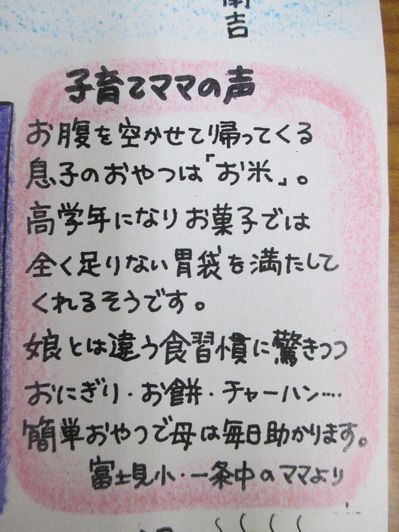 吉
子育てママの声
お腹を空かせて帰ってくる
息子のおやつは「お米」。
高学年になりお菓子では
全く足りない胃袋を満たして
くれるそうです。
娘とは違う食習慣に驚きつつ
おにぎり・お餅・チャーハン…
簡単おやつで母は毎日助かります。
富士見小・一条中のママより